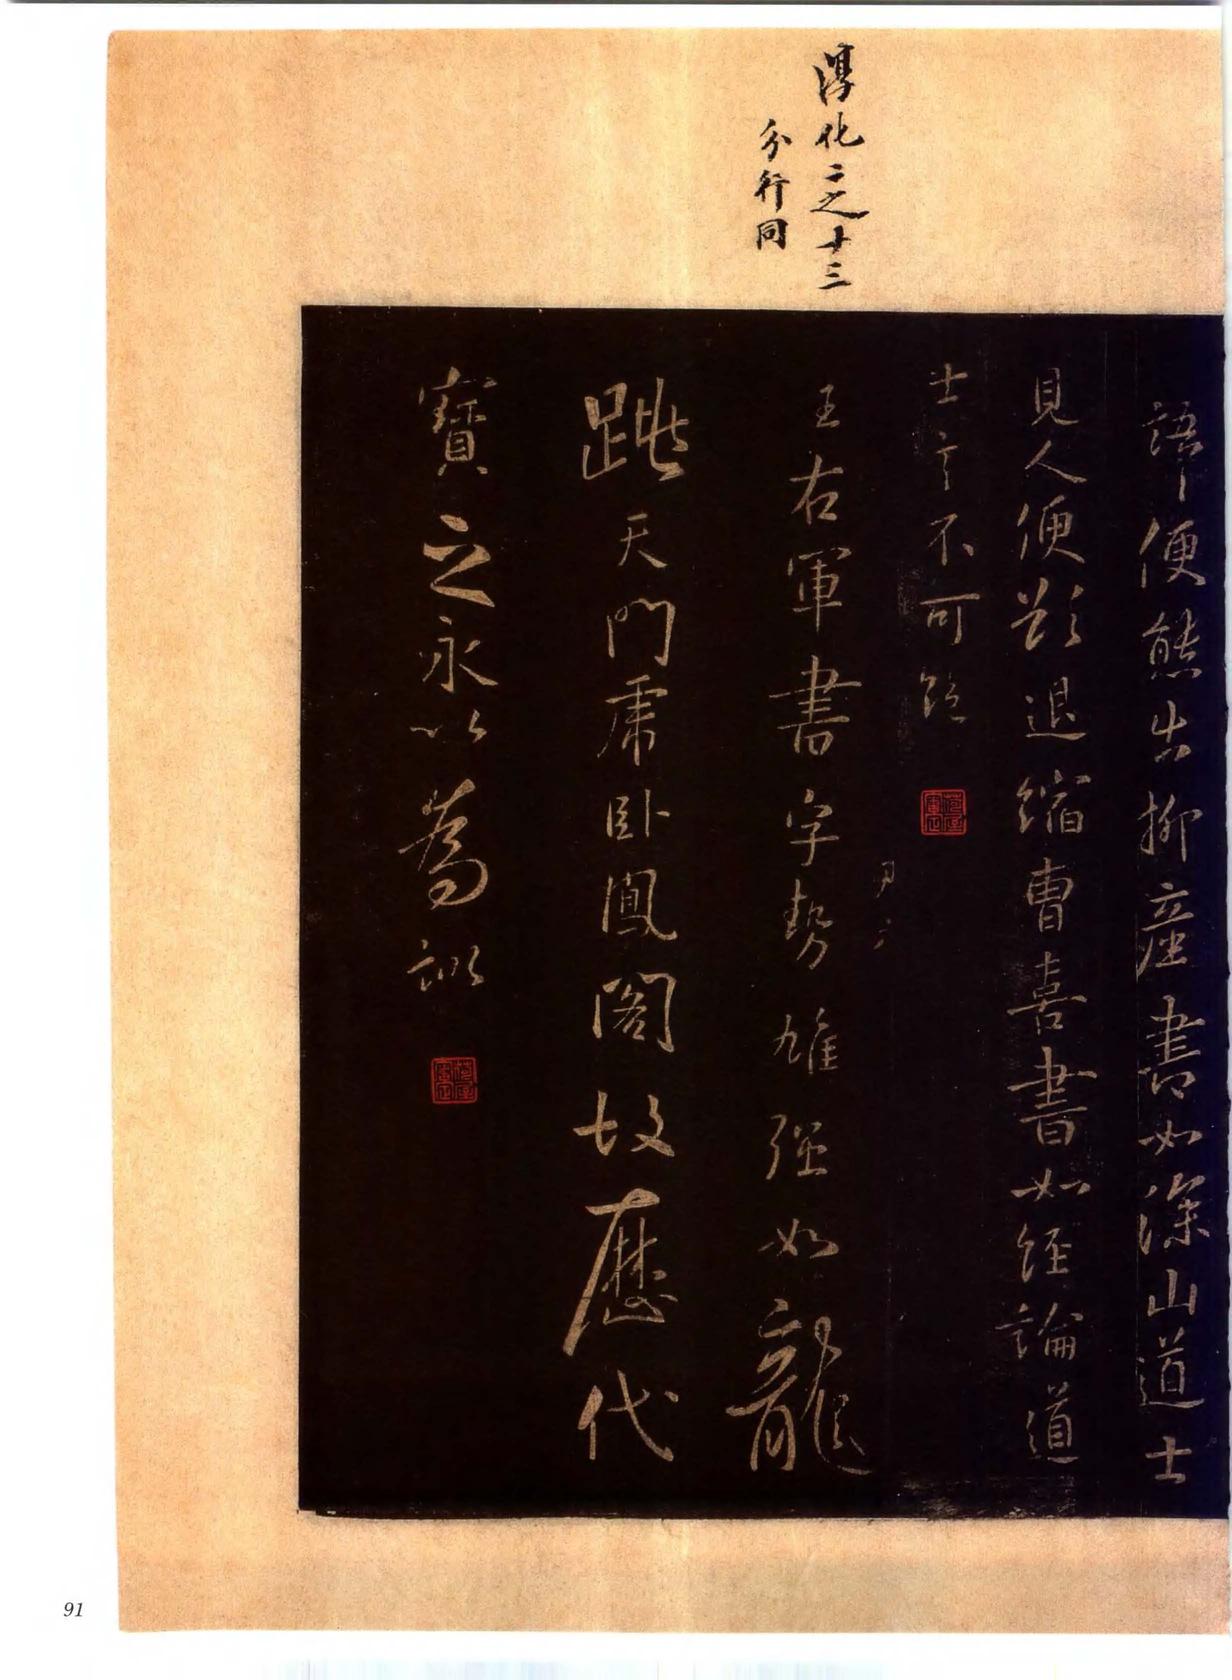 淳化二之十三
分行同
語便態出柳產書如深山道士
見人便欲退縮曹喜書如經論道
士言不可絕
王右軍書字勢雄強如龍
跳天門虎臥鳳閣故歷代
寶之永以為訓
91